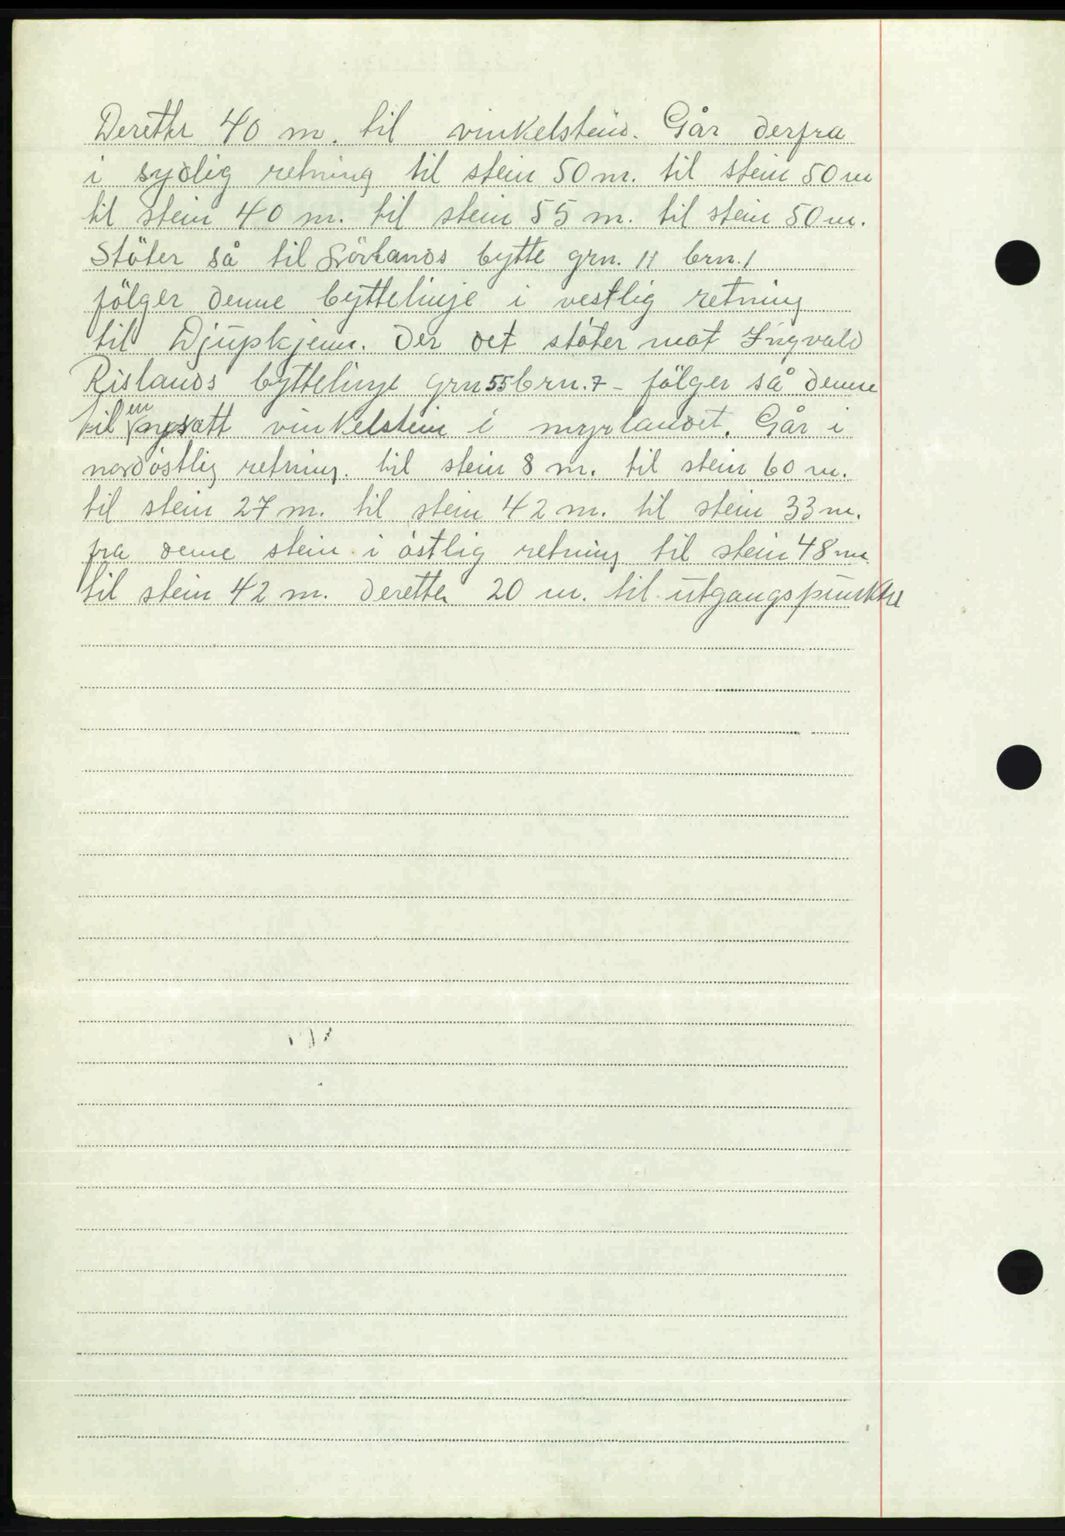 Deretter 40 m. til vinkelstein. Går derfra
i sydlig retning til stein 50 m. til stein 50 m
til stein 40 m. til stein 55 m. til stein 50 m.
Stöter så til Sörlands bytte grn. 11 brn. 1
fölger denne byttelinje i vestlig retning
til Djupkjenn. Der det stöter mot Ingvald
Rislands byttelinje grn 55 brn. 7 - fölger så denne
til en nysatt vinkelstein i myrlandet. Går i
nordöstlig retning. til stein 8 m. til stein 60 m.
til stein 27 m. til stein 42 m. til stein 33 m.
fra denne stein i östlig retning til stein 48 m.
til stein 42 m. deretter 20 m. til utgangspunktet